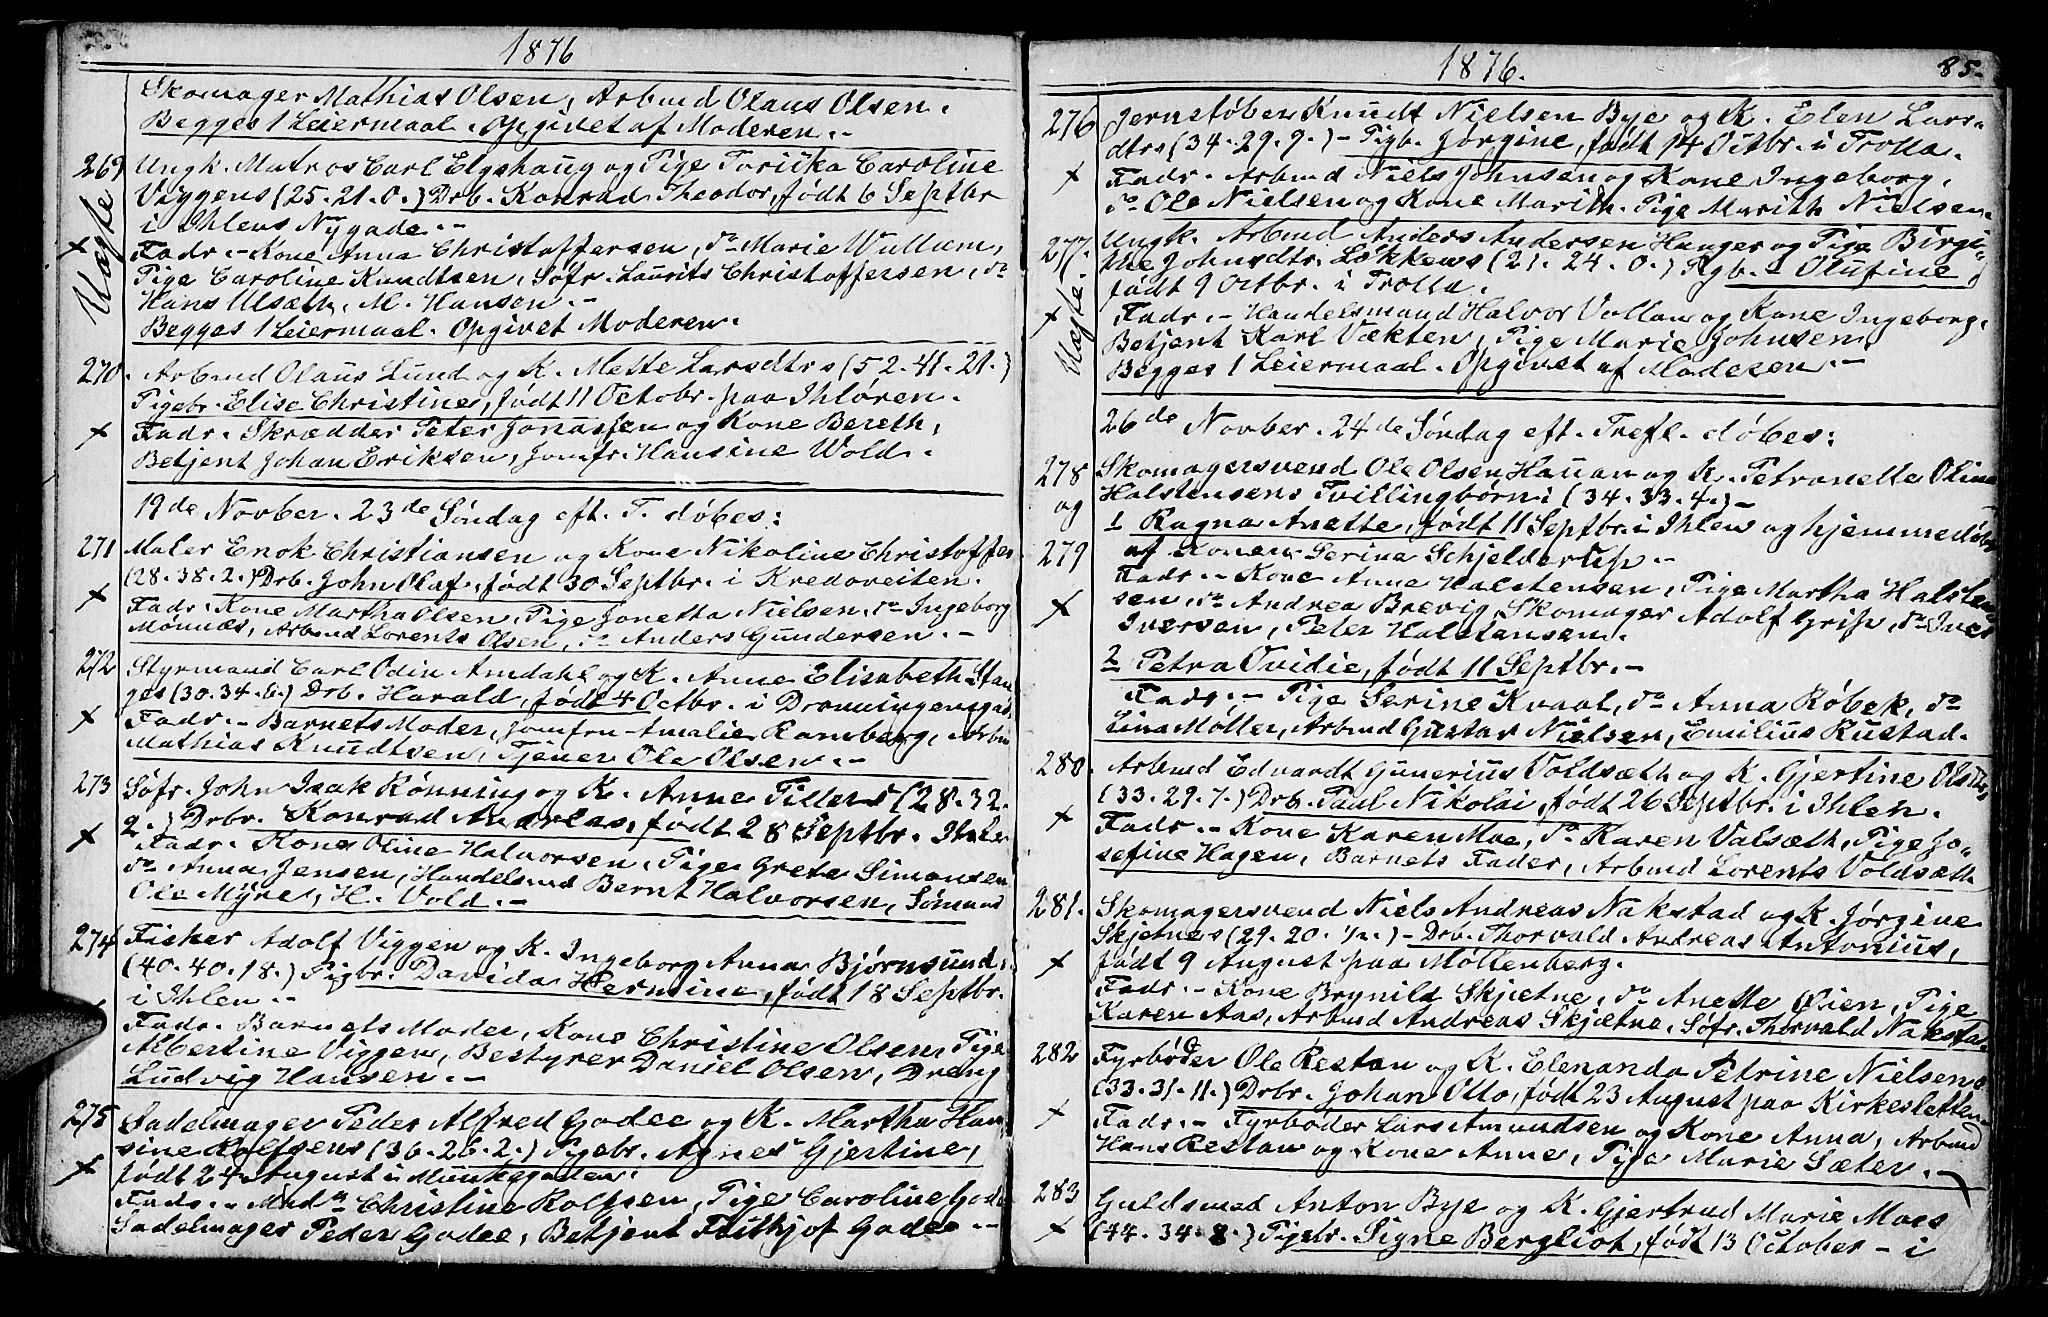 1876
Skomager Mathias Olsen, Arbmd Olaus Olsen.
Begges 1 Leiermaal. Opgivet af Moderen. -
269 Ungk. Matros Carl Elgshaug og Pige Caroline
Viggens (25. 21. 0.) Drb. Konrad Theodor, født 6 Septbr
i Ihlens Nygade. -
Uægte
x Fadr. - Kone Anna Christoffersen, do Marie Wullum,
Pige Caroline Knudtsen, Søfr. Laurits Christoffersen, do
Hans Ulsæth, M. Hansen. -
Begges 1 Leiermaal. Opgivet Moderen.
270. Arbmd Olaus Lund og K. Mette Larsdtrs (52. 41. 21.)
Pigebr. Elise Christine, født 11 Octobr. paa Ihløren.
x Fadr. Skrædder Peter Jonassen og Kone Bereth,
Betjent Johan Eriksen, Jomfr. Hansine Wold.
19de Novber. 23de Søndag eft. T. døbes:
271 Maler Enok Christiansen og Kone Nikoline Christoffer
(28. 38. 2.) Drb. John Olaf, født 30 Septbr. i Kredoveiten.
x Fadr. Kone Martha Olsen, Pige Jonetta Nielsen, do Ingeborg
Mønnæs, Arbmd Lorents Olsen, do Anders Gundersen. -
272 Styrmand Carl Odin Amdahl og K. Anne Elisabeth Stan
ges (30. 34. 6.) Drb. Harald, født 4 Octbr. i Dronningensgad.
x Fadr. - Barnets Moder, Jomfru Amalie Ramberg, Arbm
Mathias Knudtsen, Tjener Ole Olsen. -
273 Søfr. John Isak Rønning og K. Anne Tillers (28. 32.
2.) Drbr. Konrad Andreas, født 28 Septbr. Ihlen
x Fadr. Kone Oline Halvorsen, Pige Grete Simonsen
do Anna Jensen, Handelsmd Bernt Halvorsen, Sømand
Ole Myre, H. Vold. -
274 Fisker Adolf Viggen og K. Ingeborg Anna Bjørnsund,
(40. 40. 18.) Pigbr. Davida Hermine, født 18 Septbr.
i Ihlen. -
x Fadr. Barnets Moder, Kone Christine Olsen, Pige
Albertine Viggen, Bestyrer Daniel Olsen, Dreng
Ludvig Hansen. -
275 Sadelmager Peder Alfred Godee og K. Martha Han
sine Rolfsens (36. 26. 2.) Pigebr. Agnes Gjertine,
x født 24 August i Munkegaden.
Fadr. - Christine Rolfsen, Pige Caroline Gode
Sadelmager Peder Godee, Betjent Frithjof Godee -
1876. 85.
276 Jernstøber Knudt Nielsen Bye og K. Elen Lars-
dtrs (34. 29. 9.) - Pigb. Jørgine, født 14 Octbr. i Trolla.
x Fadr. Arbmd Niels Johnsen og Kone Ingeborg,
do Ole Nielsen og Kone Marith, Pige Marith Nielsen.
277. Ungk. Arbmd Anders Andersen Hanger og Pige Birgi-
the Johnsdtr. Løkkens (21. 24. 0.) Pgb. Olufine,
født 9 Octbr. i Trolla.
Uægte.
x Fadr. - Handelsmand Halvor Vollan og Kone Ingeborg,
Betjent Karl Vækten, Pige Marie Johnsen,
Begges 1 Leiermaal. Opgivet af Moderen. -
26de Novber. 24de Søndag eft. Trefl. døbes:
278 Skomagersvend Ole Olsen Hauan og K. Petronelle Olina
og Halstensens Tvillingbørn: (34. 33. 4.) -
1 Ragna Anette, født 11 Septbr. i Ihlen og hjemmedøbt
279 af Konen Serina Schjelderup. -
Fadr. - Kone Anne Halstensen, Pige Martha Halsten
x sen, do Andrea Brevig, Skomager Adolf Grip, do Iver
Iversen, Peter Halstansen.
2 Petra Ovidie, født 11 Septbr. -
Fadr. - Pige Serine Kvaal, do Anna Røbek, do
Lina Møller, Arbmd Gustav Nielsen, Emilius Rustad.
280. Arbmd Edvardt Gunerius Voldsæth og K. Gjertine Olsdtrs
(33. 29. 7.) Drb. Paul Nikolai, født 26 Septbr. i Ihlen.
x Fadr. - Kone Karen Moe, do Karen Valsæth, Pige Jo-
sefine Hagen, Barnets Fader, Arbmd Lorents Voldsæth
281. Skomagersvend Niels Andreas Nakstad og K. Jørgine
Skjetnes (29. 20. ½.) - Drb. Thorvald Andreas Antonius,
x født 9 August paa Møllenberg.
Fadr. - Kone Brynild Skjetne, do Anette Øien, Pige
Karen Aas, Arbmd Andreas Skjetne, Søfr. Thorvald Nakstad.
282 Fyrbøder Ole Restan og K. Elenanda Petrine Nielsens
(33. 31. 11.) Drbr. Johan Otto, født 23 August paa Kirkesletten
x Fadr. - Fyrbøder Lars Amundsen og Kone Anna, Arbmd
Hans Restan og Kone Anne, Pige Marie Sæter. -
283 Guldsmed Anton Bye og K. Gjertrud Marie Moes
x (44. 34. 8.) Pigebr. Signe Bergliot, født 13 October - i